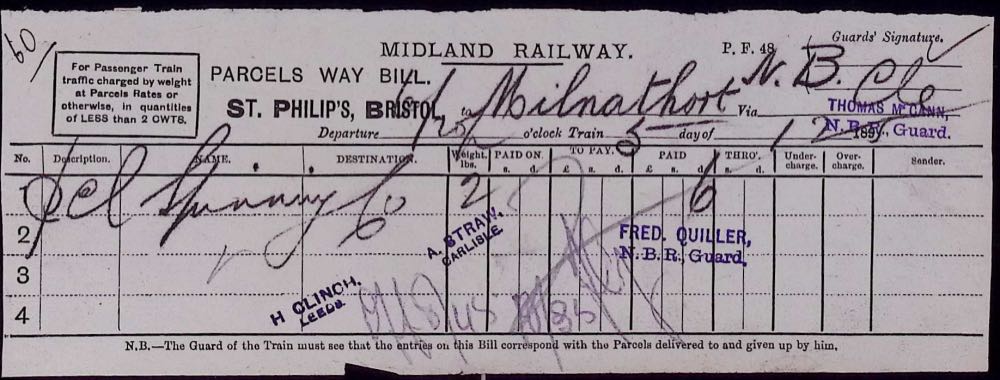 60/
MIDLAND RAILWAY.
P. F. 48
Guards' Signature.
For Passenger Train
traffic charged by weight
at Parcels Rates or
otherwise, in quantities
of LESS than 2 OWTS.
PARCELS WAY BILL.
ST. PHILIP'S, BRISTOL, to Milnathort Via N. B. Cle
THOMAS McCANN,
N.B.R., Guard.
Departure o'clock Train 5 day of 12 189
No. Description. NAME. DESTINATION. Weight. lbs. PAID ON. s. d. TO PAY. £ s. d. PAID £ s. d. THRO'. s. d. Under-charge. Over-charge. Sender.
Pcl Spinning Co 2 6
2
A. STRAW.
CARLISLE.
FRED. QUILLER,
N.B.R., Guard.
3
H CLINCH.
LEEDS.
4
N.B.—The Guard of the Train must see that the entries on this Bill correspond with the Parcels delivered to and given up by him.